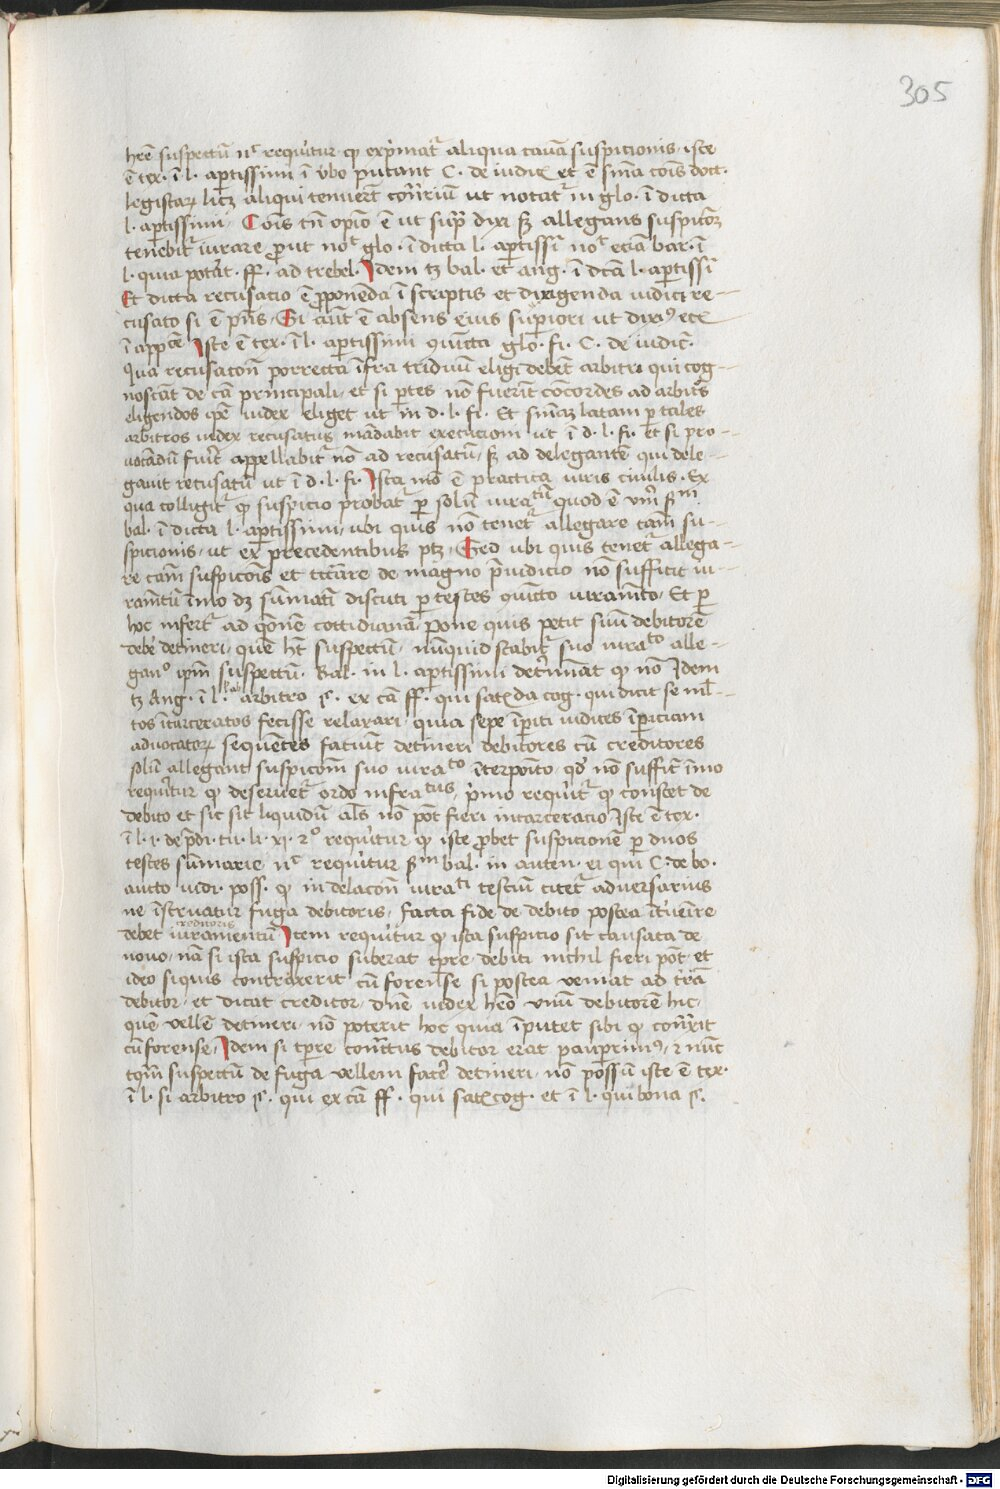 305
hr̄e suspectū nc̄ requiritur qp exp̄mat̄ aliqua causā suspicionis iste
ē tex. ī l. ap̄tissimi ī v̄bo putant C. de iudic̄ et ē sn̄ia cōis doct.
legistaꝝ licꝫ aliqui tenuer̄t cōn̄rium ut notat̄ in glo. ī dicta
l. ap̄tissimi Cōis tn̄ opio ē ut sup̄ dixi sꝫ allegans suspicōꝫ
tenebit̄ iurare prout not̄ glo. ī dicta l. ap̄tissī not̄ eciā bar. ī
l. quia potȧt. ff. ad trebel. Idem tꝫ bal. et ang. ī dc̄ā l. ap̄tissī
Et dicta recusacio ē p̄ponēda ī scriptis et dirigenda iudici re-
cusato si ē p̄ns Si aūt ē absens eius sup̄iori ut dixi⁹ etc̄
ī app̄ce Iste ē tex. ī l. ap̄tissimi quīcta glo. fi. C. de iudic̄.
Qua recusacōn̄ porrecta īfra triduū eligi debēt arbitri qui cog-
noscāt de cā principali et si p̄tes nō fuerīt cōcordes ad arbitōs
eligendos ip̄e iudex eliget ut in d. l. fi. Et sn̄iaꝫ latam p̄ tales
arbitros iudex recusatus mādabit execucioni ut ī d. l. fi. et si pro-
uocādū fuīt appellabit̄ nō ad recusatū sꝫ ad delegantē qui dele-
gauit recusatū ut ī d. l. fi. Ista mō ē practica iuris ciuilis. Ex
qua colligit̄ qp suspicio probat̄ p̄ solū iuratū quod ē vm̄ sm̄
bal. ī dicta l. ap̄tissimi ubi quis nō tenet̄ allegare cām su-
spicionis ut ex precedentibus ptꝫ Sed ubi quis tenet̄ allega-
re cām suspicōis et tractāre de magno p̄iudicio nō sufficit iu-
ramtū īmo dꝫ sūmatī discuti p̄ testes quīcto iuramīto Et p̄
hoc infert̄ ad q̄onē cottidianā pone quis petit suū debitorē
debe' detineri quē ht̄ suspectū nūquid stabit̄ suo iurato alle-
gan̄o ip̄m suspectū. Bal. in l. ap̄tissimi det̄minat qp nō Idem
tꝫ Ang. ī l. si ab arbitro §. ex cā ff. qui satisda cog. qui dicit se ml̄-
tos īcarceratos fecisse relaxari quia sepe īp̄iti iudices īp̄iciam
aduocatoꝝ sequētes faciūt detineri debitores cū creditores
solū allegant suspicōm̄ suo iurato īterpoīto qd̄ nō suffic̄ īmo
requiritur qp deseruet̄ ordo infratus p̄mo requirit̄ qp constet de
debito et sic sit liquidū al̄s nō pōt fieri incarceracio Iste ē tex.
ī l. i. de p̄di. tu. li. xi. 2o requiritur qp iste probet suspicionē p̄ duos
testes sūmarie nc̄ requiritur sm̄ bal. in auten. ei qui C. de bo.
aucto iudi. poss. qp in delacōn̄ iurati testiū citet̄ adversarius
ne īstruatur fuga debitoris facta fide de debito postea ītueire
debet iuramentū creditoris Item requiritur qp ista suspicio sit causata de
nouo nā si ista suspicio suberat tp̄re debiti nichil fieri pōt et
ideo siquis contraxerit cū forense si postea veniat ad t̄rā
debitor et dicat creditor dn̄e iudex hēo vnū debitorē hic
quē vellē detineri nō poterit hoc quia īputet sibi qp cont̄xit
cū forense Idem si tp̄re contractus debitor erat paup̄rim⁹ ⁊ nūc
tq̄m suspectū de fuga vellem face' detineri nō possū iste ē tex.
ī l. si arbitro §. qui ex cā ff. qui satis cog. et ī l. qui bona §.
Digitalisierung gefördert durch die Deutsche Forschungsgemeinschaft - DFG